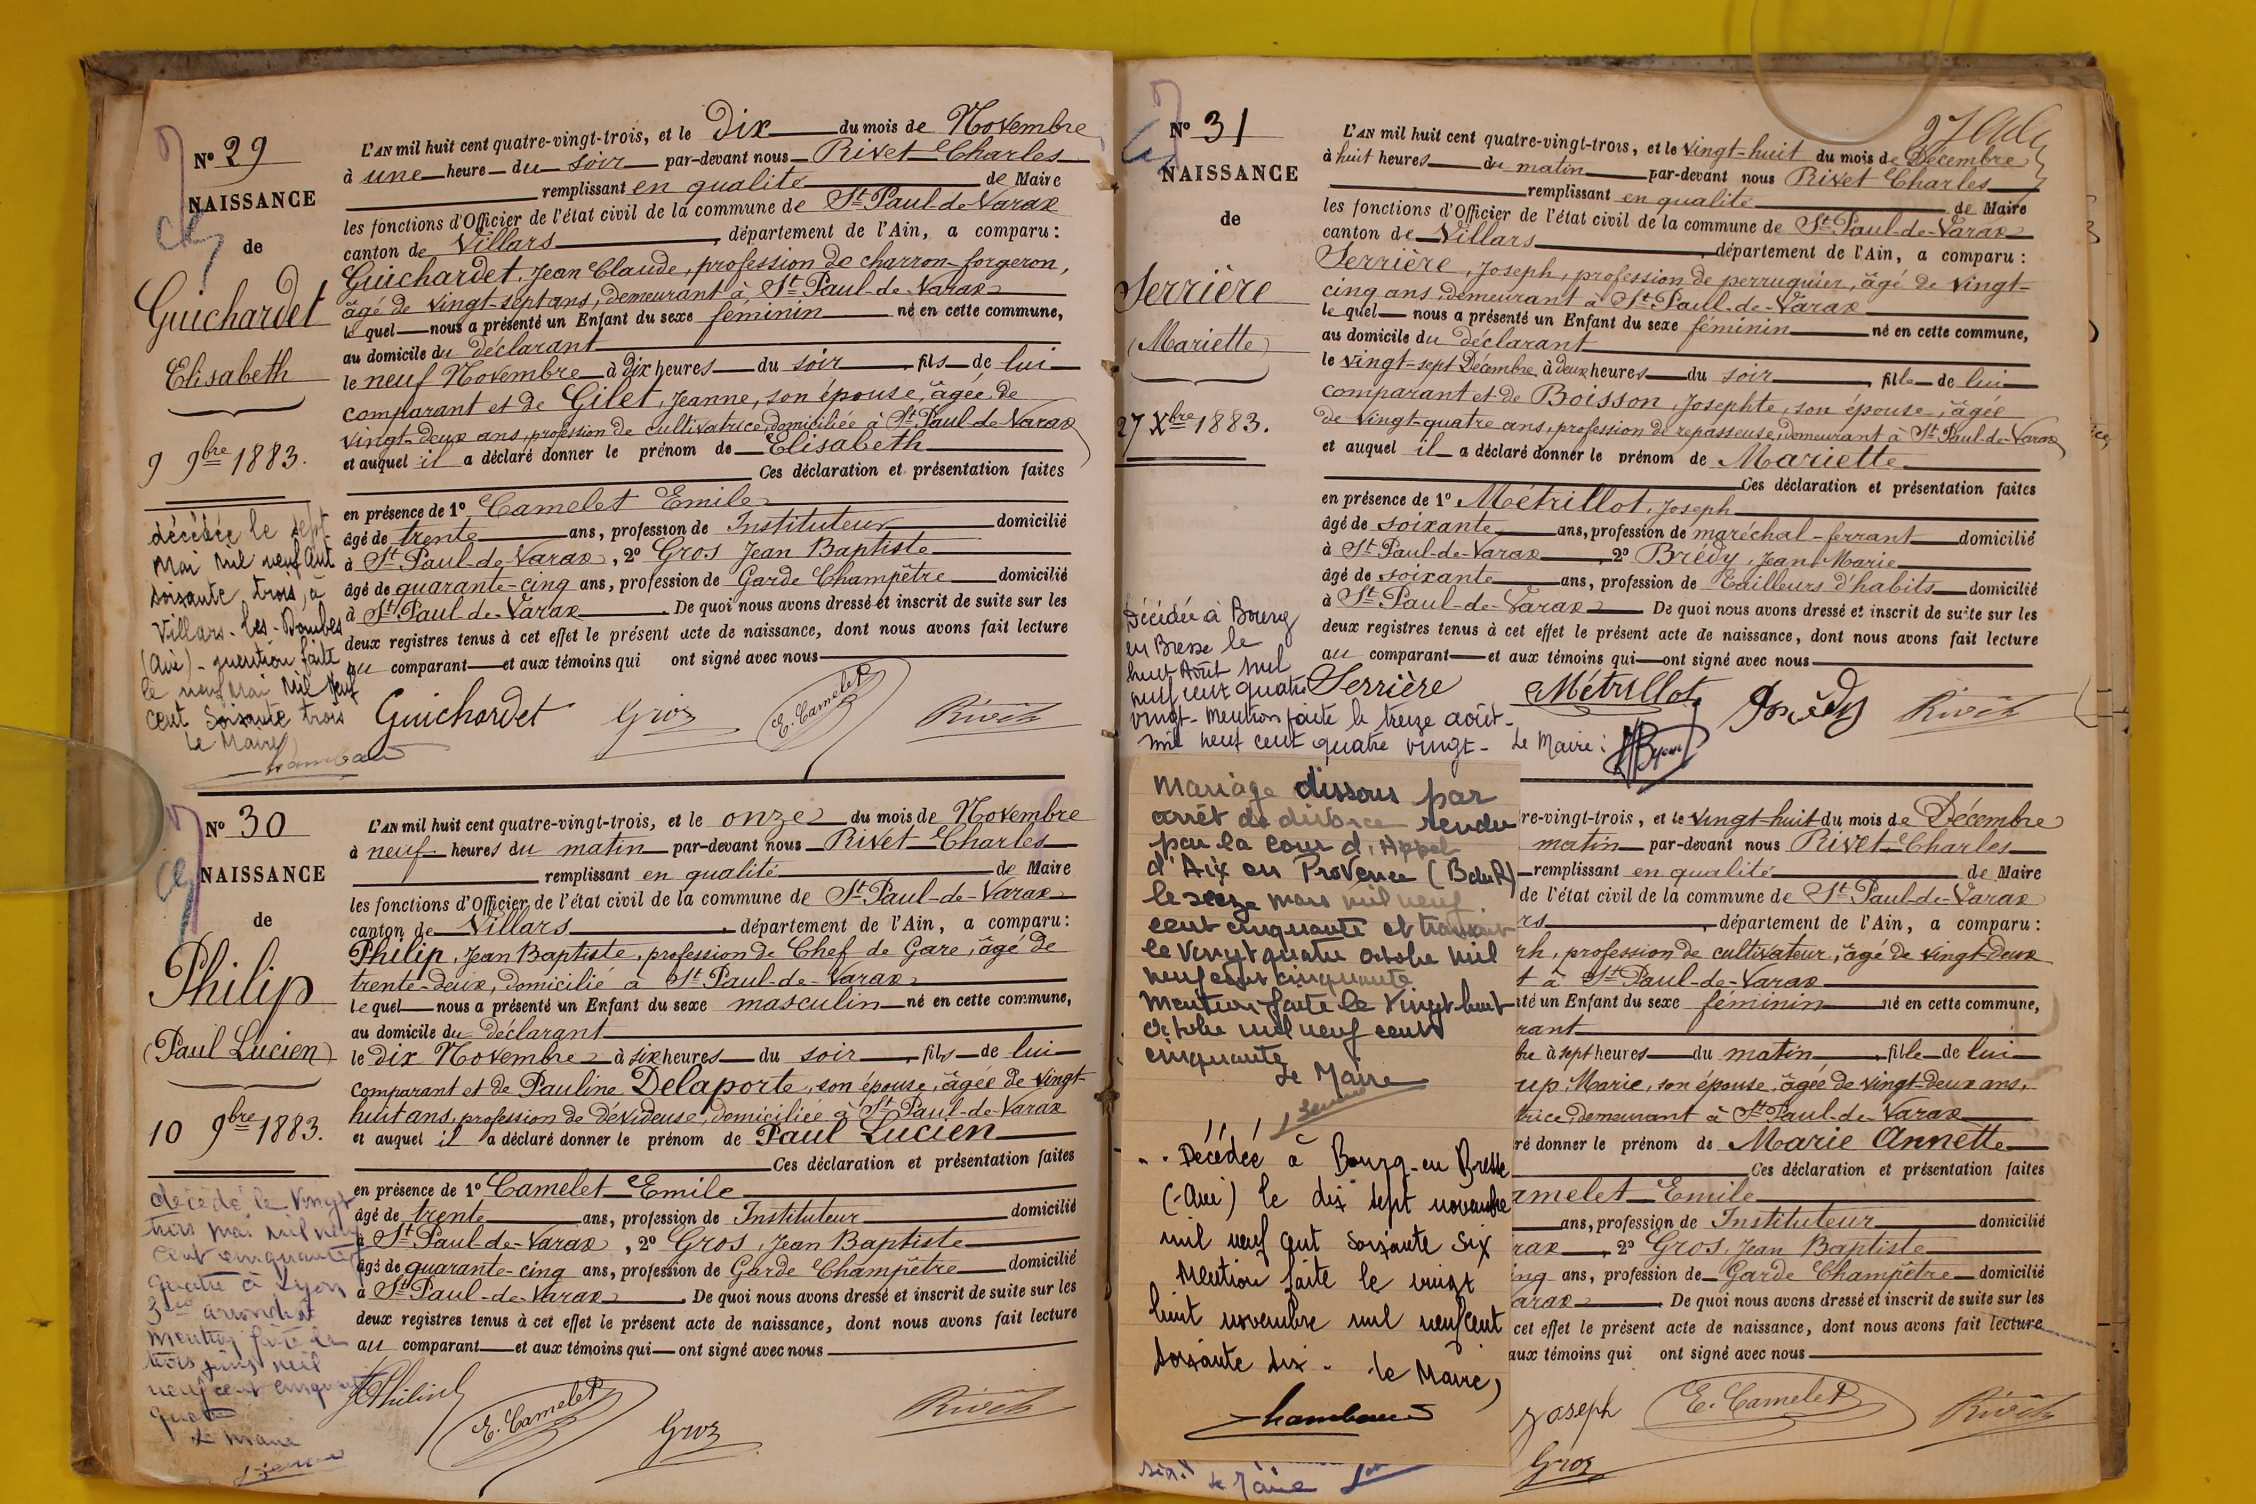 N° 29
NAISSANCE
de
Guichardet
Elisabeth
9 9bre 1883.
décédée le sept
mai mil neuf cent
soixante trois, à
Villars-les-Dombes
(Ain) - mention faite
le neuf mai mil neuf
cent soixante trois
Le Maire
L'AN mil huit cent quatre-vingt-trois, et le Dix du mois de Novembre
à une heure du soir par-devant nous Rivet Charles
remplissant en qualité de Maire
les fonctions d'Officier de l'état civil de la commune de St Paul-de-Varax
canton de Villars, département de l'Ain, a comparu:
Guichardet, Jean Claude, profession de charron-forgeron,
âgé de vingt-sept ans, demeurant à St Paul-de-Varax
lequel nous a présenté un Enfant du sexe féminin né en cette commune,
au domicile du déclarant
le neuf Novembre à dix heures du soir, fils de lui
comparant et de Gilet, Jeanne, son épouse, âgée de
vingt-deux ans, profession de cultivatrice, domiciliée à St Paul-de-Varax
et auquel il a déclaré donner le prénom de Elisabeth
Ces déclaration et présentation faites
en présence de 1° Camelet Emile
âgé de trente ans, profession de Instituteur domicilié
à St Paul-de-Varax, 2° Gros Jean Baptiste
âgé de quarante-cinq ans, profession de Garde Champêtre domicilié
à St Paul-de-Varax. De quoi nous avons dressé et inscrit de suite sur les
deux registres tenus à cet effet le présent acte de naissance, dont nous avons fait lecture
au comparant et aux témoins qui ont signé avec nous
Guichardet Gros E. Camelet Rivet
N° 30
NAISSANCE
de
Philip
(Paul Lucien)
10 9bre 1883.
décédé le vingt
trois mai mil neuf
cent cinquante
quatre à Lyon
3me arrondist
mention faite le
trois juin mil
neuf cent cinquante
quatre
Le Maire
L'AN mil huit cent quatre-vingt-trois, et le onze du mois de Novembre
à neuf heures du matin par-devant nous Rivet Charles
remplissant en qualité de Maire
les fonctions d'Officier de l'état civil de la commune de St Paul-de-Varax
canton de Villars, département de l'Ain, a comparu:
Philip, Jean Baptiste, profession de Chef de Gare, âgé de
trente-deux, domicilié à St Paul-de-Varax
lequel nous a présenté un Enfant du sexe masculin né en cette commune,
au domicile du déclarant
le dix Novembre à six heures du soir, fils de lui
comparant et de Pauline Delaporte, son épouse, âgée de vingt-
huit ans, profession de dévideuse, domiciliée à St Paul-de-Varax
et auquel il a déclaré donner le prénom de Paul Lucien
Ces déclaration et présentation faites
en présence de 1° Camelet Emile
âgé de trente ans, profession de Instituteur domicilié
à St Paul-de-Varax, 2° Gros, Jean Baptiste
âgé de quarante-cinq ans, profession de Garde Champêtre domicilié
à St Paul-de-Varax. De quoi nous avons dressé et inscrit de suite sur les
deux registres tenus à cet effet le présent acte de naissance, dont nous avons fait lecture
au comparant et aux témoins qui ont signé avec nous
Philip E. Camelet Gros Rivet
N° 31
NAISSANCE
de
Serrière
(Mariette)
27 Xbre 1883.
Décédée à Bourg
en Bresse le
huit Août mil
neuf cent quatre
vingt - mention faite le treize août
mil neuf cent quatre vingt - Le Maire:
L'AN mil huit cent quatre-vingt-trois, et le vingt-huit du mois de Décembre
à huit heures du matin par-devant nous Rivet Charles
remplissant en qualité de Maire
les fonctions d'Officier de l'état civil de la commune de St Paul-de-Varax
canton de Villars, département de l'Ain, a comparu:
Serrière, Joseph, profession de perruquier, âgé de vingt-
cinq ans, demeurant à St Paul-de-Varax
lequel nous a présenté un Enfant du sexe féminin né en cette commune,
au domicile du déclarant
le vingt-sept Décembre à deux heures du soir, fille de lui
comparant et de Boisson, Josephte, son épouse, âgée
de vingt-quatre ans, profession de repasseuse, demeurant à St Paul-de-Varax
et auquel il a déclaré donner le prénom de Mariette
Ces déclaration et présentation faites
en présence de 1° Métrillot, Joseph
âgé de soixante ans, profession de maréchal-ferrant domicilié
à St Paul-de-Varax, 2° Brédy, Jean Marie
âgé de soixante ans, profession de Tailleurs d'habits domicilié
à St Paul-de-Varax. De quoi nous avons dressé et inscrit de suite sur les
deux registres tenus à cet effet le présent acte de naissance, dont nous avons fait lecture
au comparant et aux témoins qui ont signé avec nous
Serrière Métrillot Brédy Rivet
Mariage dissous par
arrêt de divorce rendu
par la Cour d'Appel
d'Aix en Provence (B du R)
le seize mars mil neuf
cent cinquante et transcrit
le vingt quatre octobre mil
neuf cent cinquante
Mention faite le vingt huit
octobre mil neuf cent
cinquante
Le Maire
Décédée à Bourg-en Bresse
(-Ain) le dix sept novembre
mil neuf cent soixante six
Mention faite le vingt
huit novembre mil neuf cent
soixante six - le Maire,
le Maire
re-vingt-trois, et le vingt-huit du mois de Décembre
matin par-devant nous Rivet Charles
remplissant en qualité de Maire
de l'état civil de la commune de St Paul-de-Varax
rs, département de l'Ain, a comparu:
ph, profession de cultivateur, âgé de vingt-deux
t à St Paul-de-Varax
té un Enfant du sexe féminin né en cette commune,
rant
bre à sept heures du matin, fille de lui
up, Marie, son épouse, âgée de vingt-deux ans,
trice, demeurant à St Paul-de-Varax
ré donner le prénom de Marie Annette
Ces déclaration et présentation faites
amelet Emile
ans, profession de Instituteur domicilié
rax, 2° Gros, Jean Baptiste
inq ans, profession de Garde Champêtre domicilié
arax. De quoi nous avons dressé et inscrit de suite sur les
cet effet le présent acte de naissance, dont nous avons fait lecture
aux témoins qui ont signé avec nous
Joseph E. Camelet Rivet
Gros